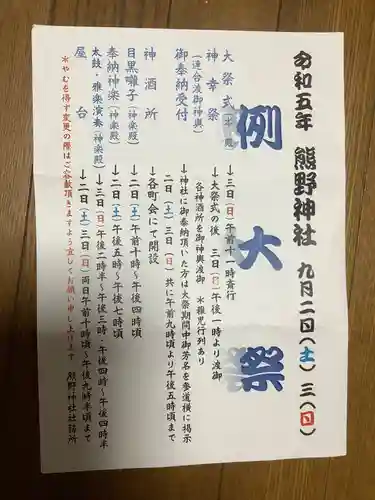 令和五年 熊野神社 九月二日(土)三(日)
例大祭
大祭式(本殿) →三日(日)午前十一時斎行
神幸祭 →大祭式の後 三日(日)午後一時より渡御
(連合渡御神輿) 各神酒所を御神輿渡御 *稚児行列あり
御奉納受付 →神社に御奉納頂いた方は大祭期間中御芳名を参道横に掲示
二日(土)三日(日)共に午前九時頃より午後五時頃まで
神酒所 →各町会にて開設
目黒囃子(神楽殿) →二日(土)午前十時〜午後四時頃
奉納神楽(神楽殿) →二日(土)午後五時〜午後七時頃
太鼓・雅楽演奏(神楽殿) →三日(日)午後二時半〜午後三時・午後四時〜午後四時半
屋台 →二日(土)三日(日)両日午前十時頃〜午後九時半頃まで
*やむを得ず変更の際はご容赦頂きますよう宜しくお願い申し上げます 熊野神社社務所